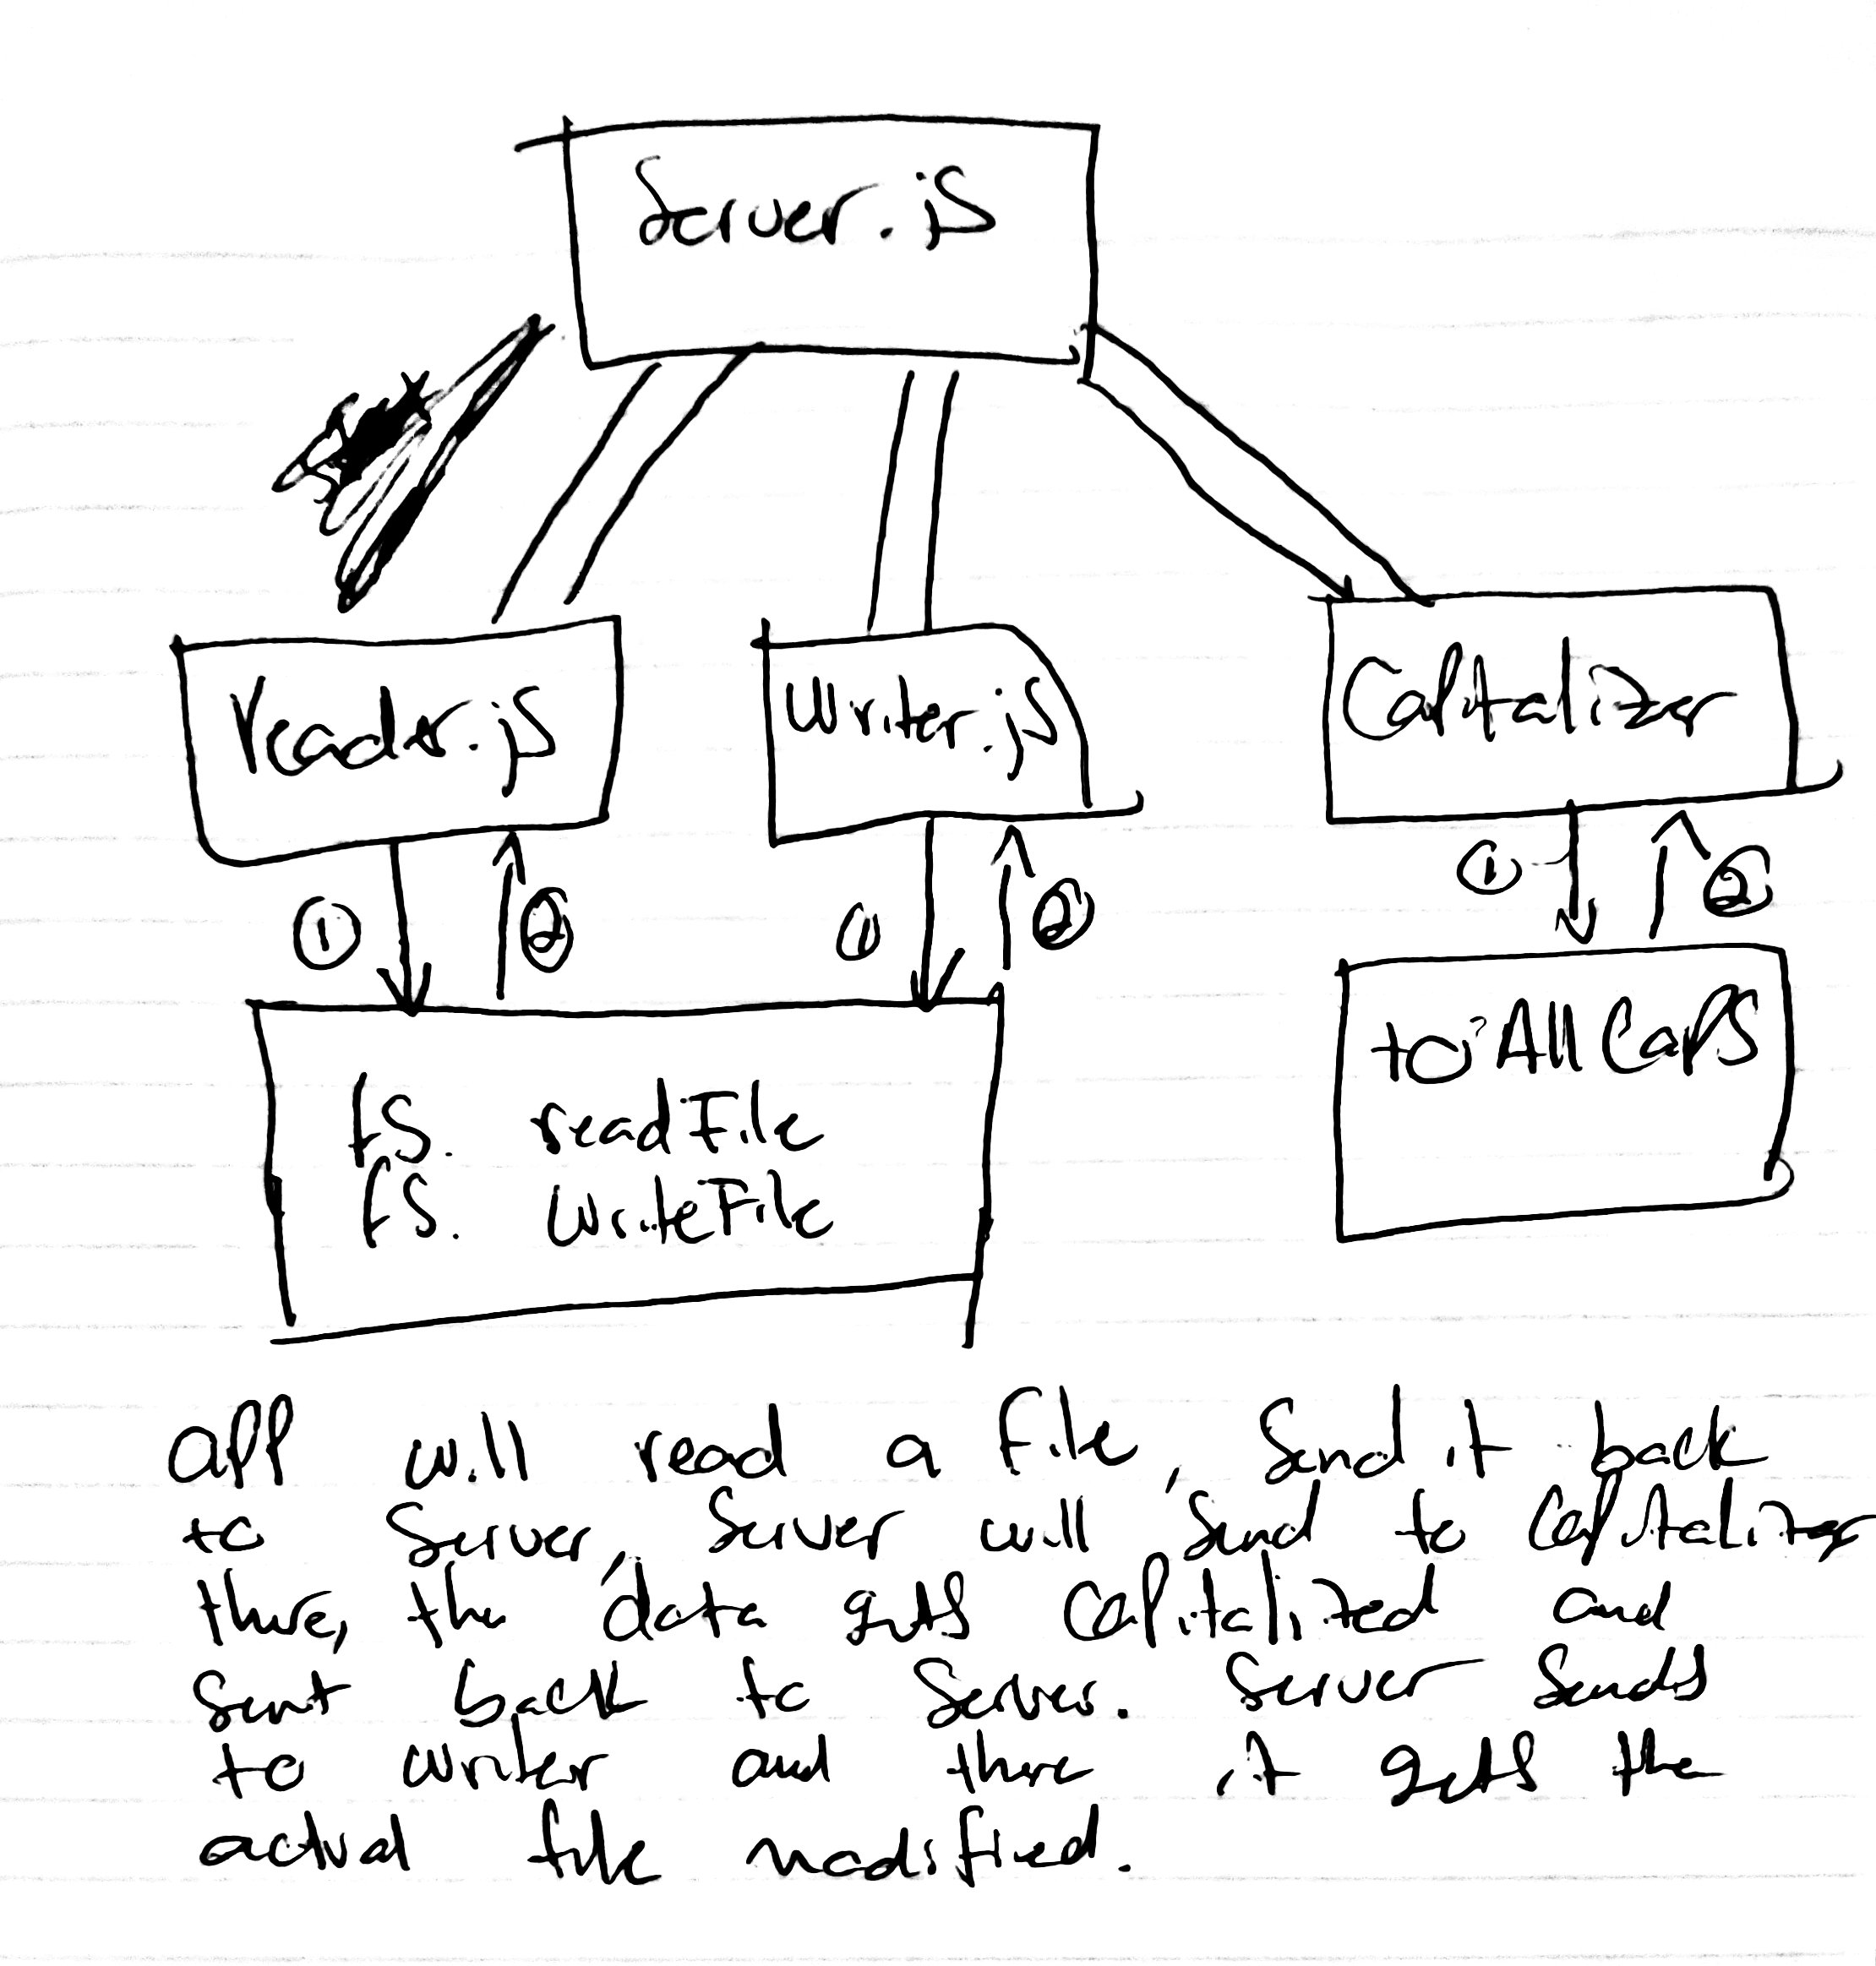 Server.js
reader.js
Writer.js
Capitalizer
① ② ① ② ① ②
toAllCaps
fs. readFile
fs. WriteFile
app will read a file, Send it back
to Server, Server will Send to Capitalizer
there, the data gets capitalized and
Sent back to Server. Server Sends
to writer and there it gets the
actual file modified.